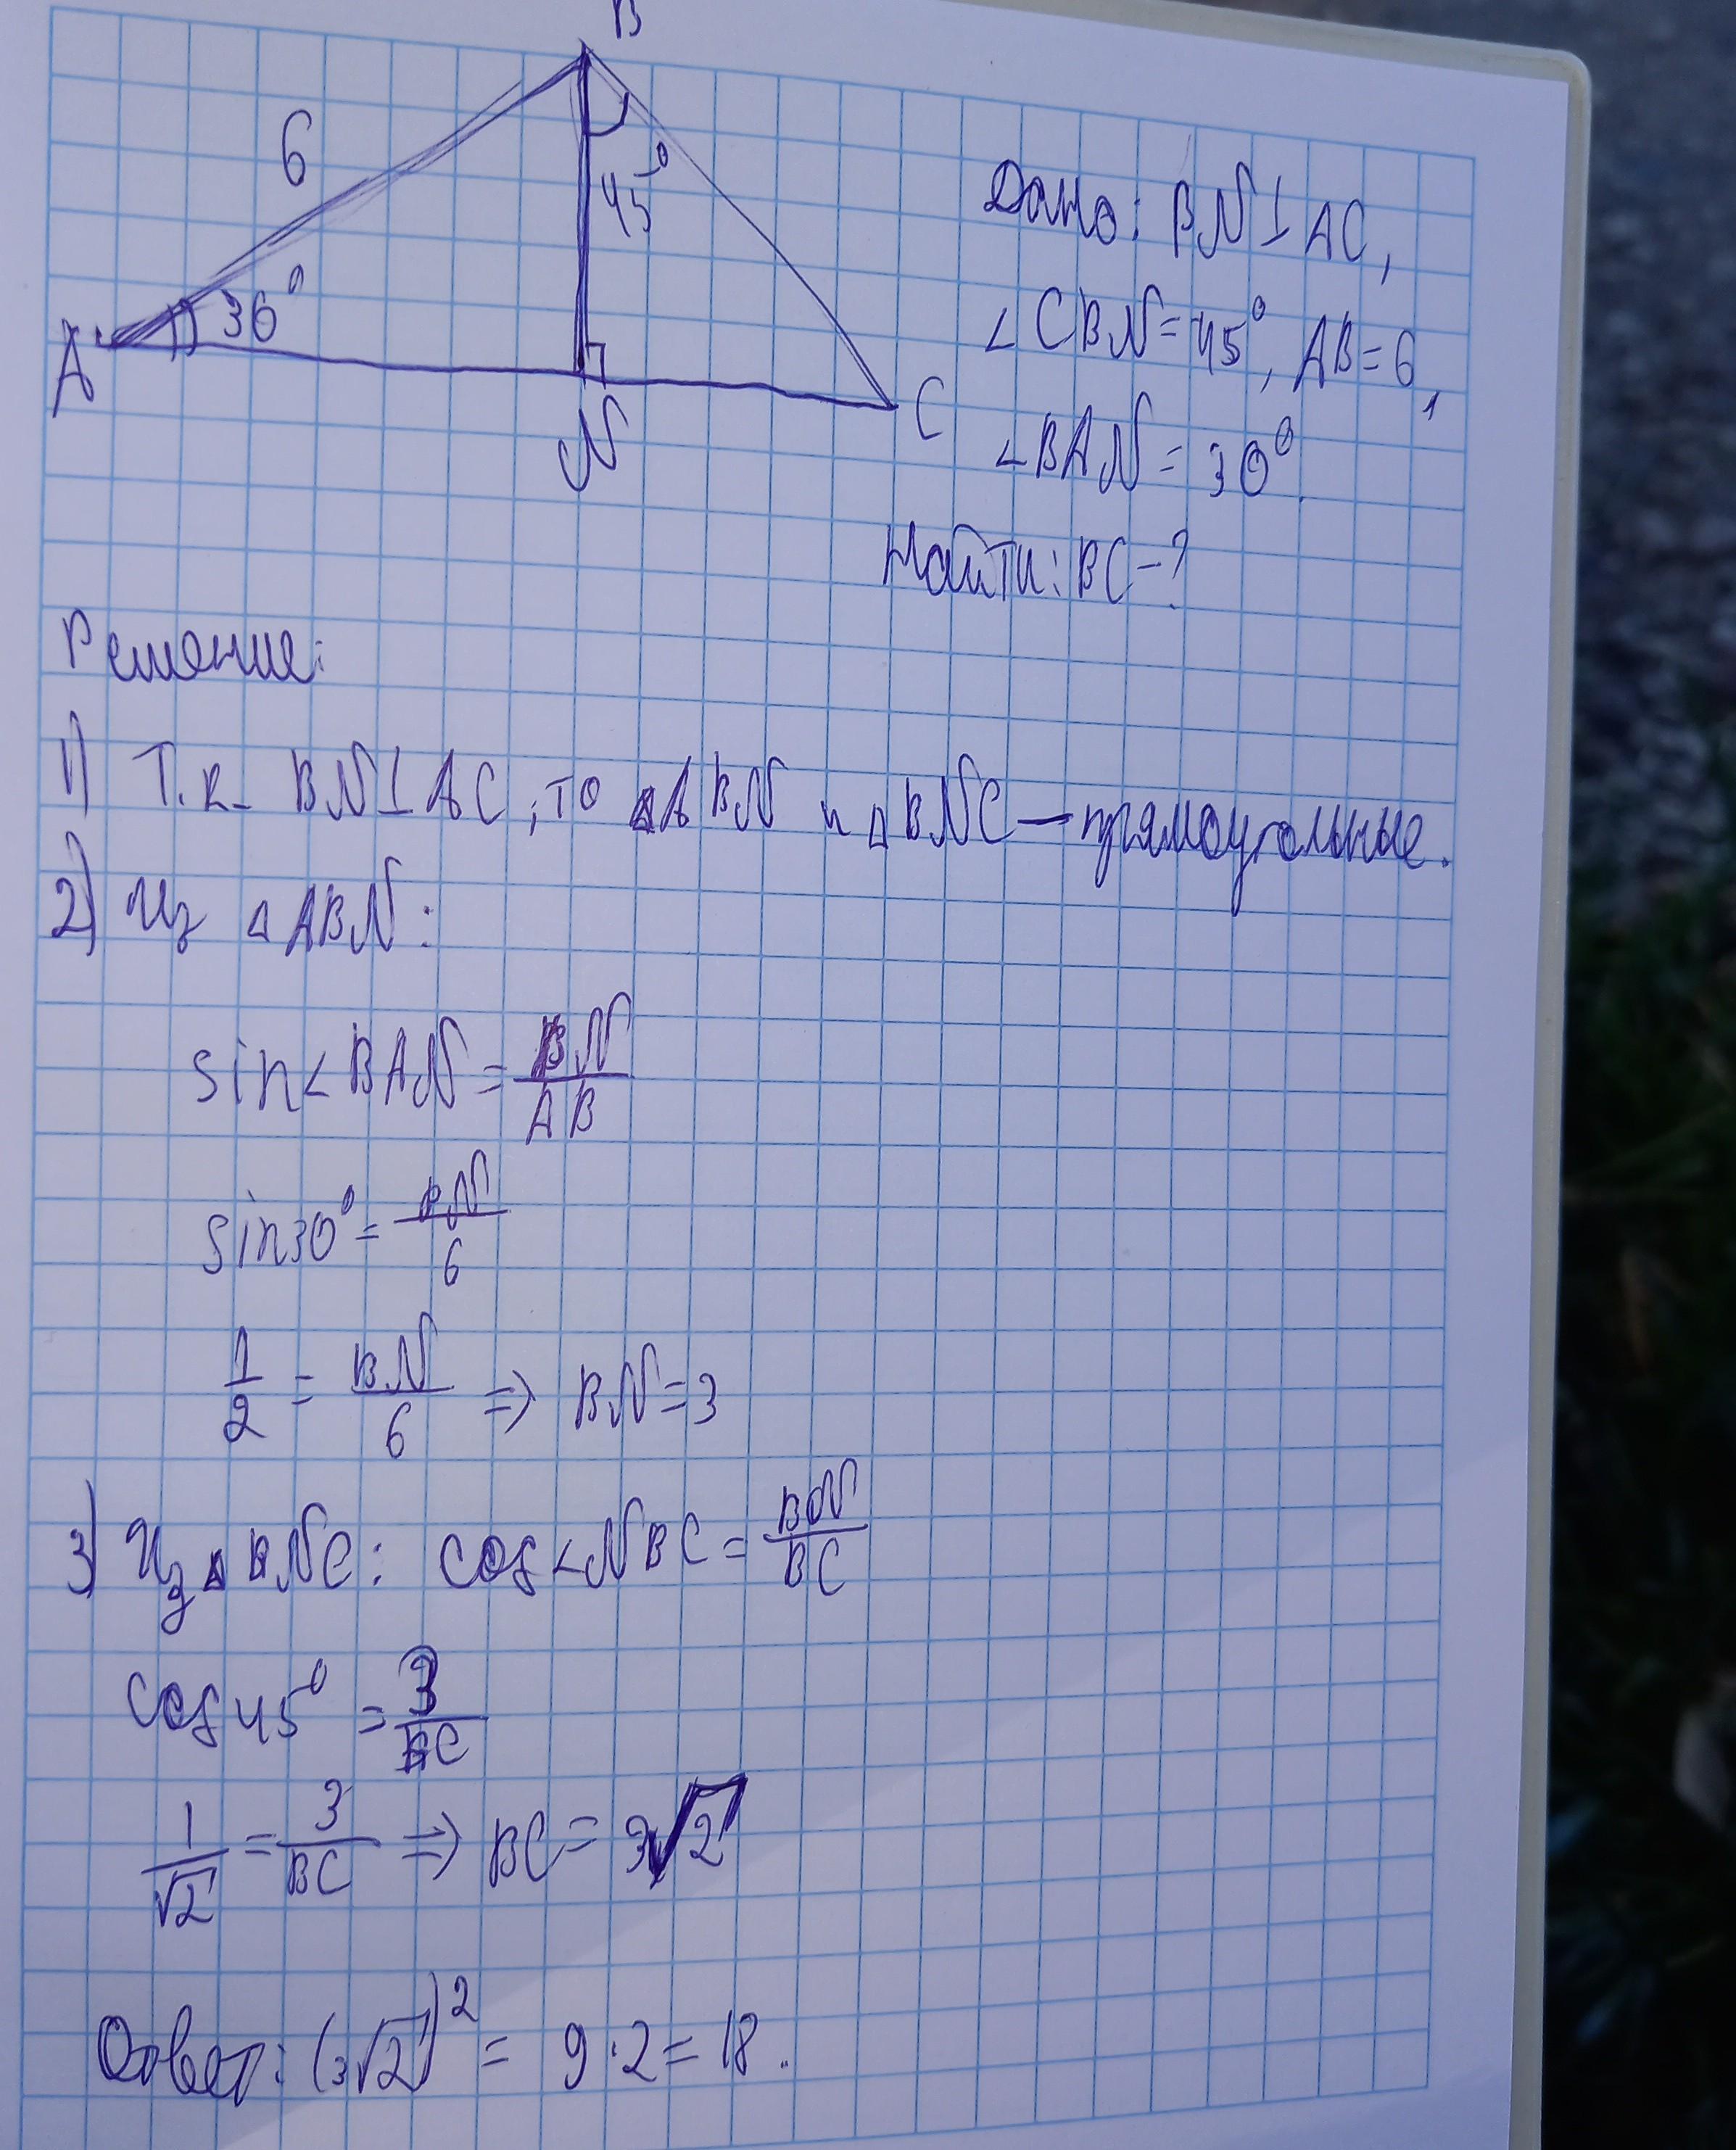 B
6
45°
36°
A
N
C
Дано: BN⊥AC,
∠CBN=45°, AB=6,
∠BAN=30°.
Найти: BC-?
Решение:
1) Т.к. BN⊥AC, то △ABN и △BNC — прямоугольные.
2) Из △ABN:
sin∠BAN = BN/AB
sin30° = BN/6
1/2 = BN/6 => BN=3
3) Из △BNC: cos∠NBC = BN/BC
cos45° = 3/BC
1/√2 = 3/BC => BC = 3√2
Ответ: (3√2)² = 9·2 = 18.